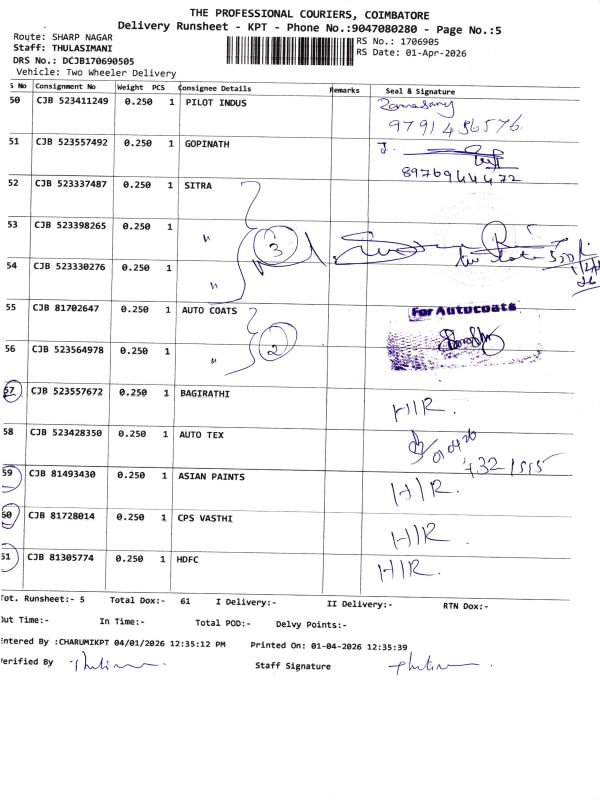 THE PROFESSIONAL COURIERS, COIMBATORE
Delivery Runsheet - KPT - Phone No.:9047080280 - Page No.:5
Route: SHARP NAGAR
RS No.: 1706905
Staff: THULASIMANI
RS Date: 01-Apr-2026
DRS No.: DCJB170690505
Vehicle: Two Wheeler Delivery
S No Consignment No Weight PCS Consignee Details Remarks Seal & Signature
50 CJB 523411249 0.250 1 PILOT INDUS
9791456576
51 CJB 523557492 0.250 1 GOPINATH J.
8976944472
52 CJB 523337487 0.250 1 SITRA
53 CJB 523398265 0.250 1 "
3
54 CJB 523330276 0.250 1 "
55 CJB 81702647 0.250 1 AUTO COATS
For Autocoats
56 CJB 523564978 0.250 1 "
2
57 CJB 523557672 0.250 1 BAGIRATHI H/R.
58 CJB 523428350 0.250 1 AUTO TEX
01/04/26
59 CJB 81493430 0.250 1 ASIAN PAINTS H/R.
60 CJB 81728014 0.250 1 CPS VASTHI H/R.
61 CJB 81305774 0.250 1 HDFC H/R.
Tot. Runsheet:- 5 Total Dox:- 61 I Delivery:- II Delivery:- RTN Dox:-
Out Time:- In Time:- Total POD:- Delvy Points:-
Entered By :CHARUMIKPT 04/01/2026 12:35:12 PM Printed On: 01-04-2026 12:35:39
Verified By Staff Signature